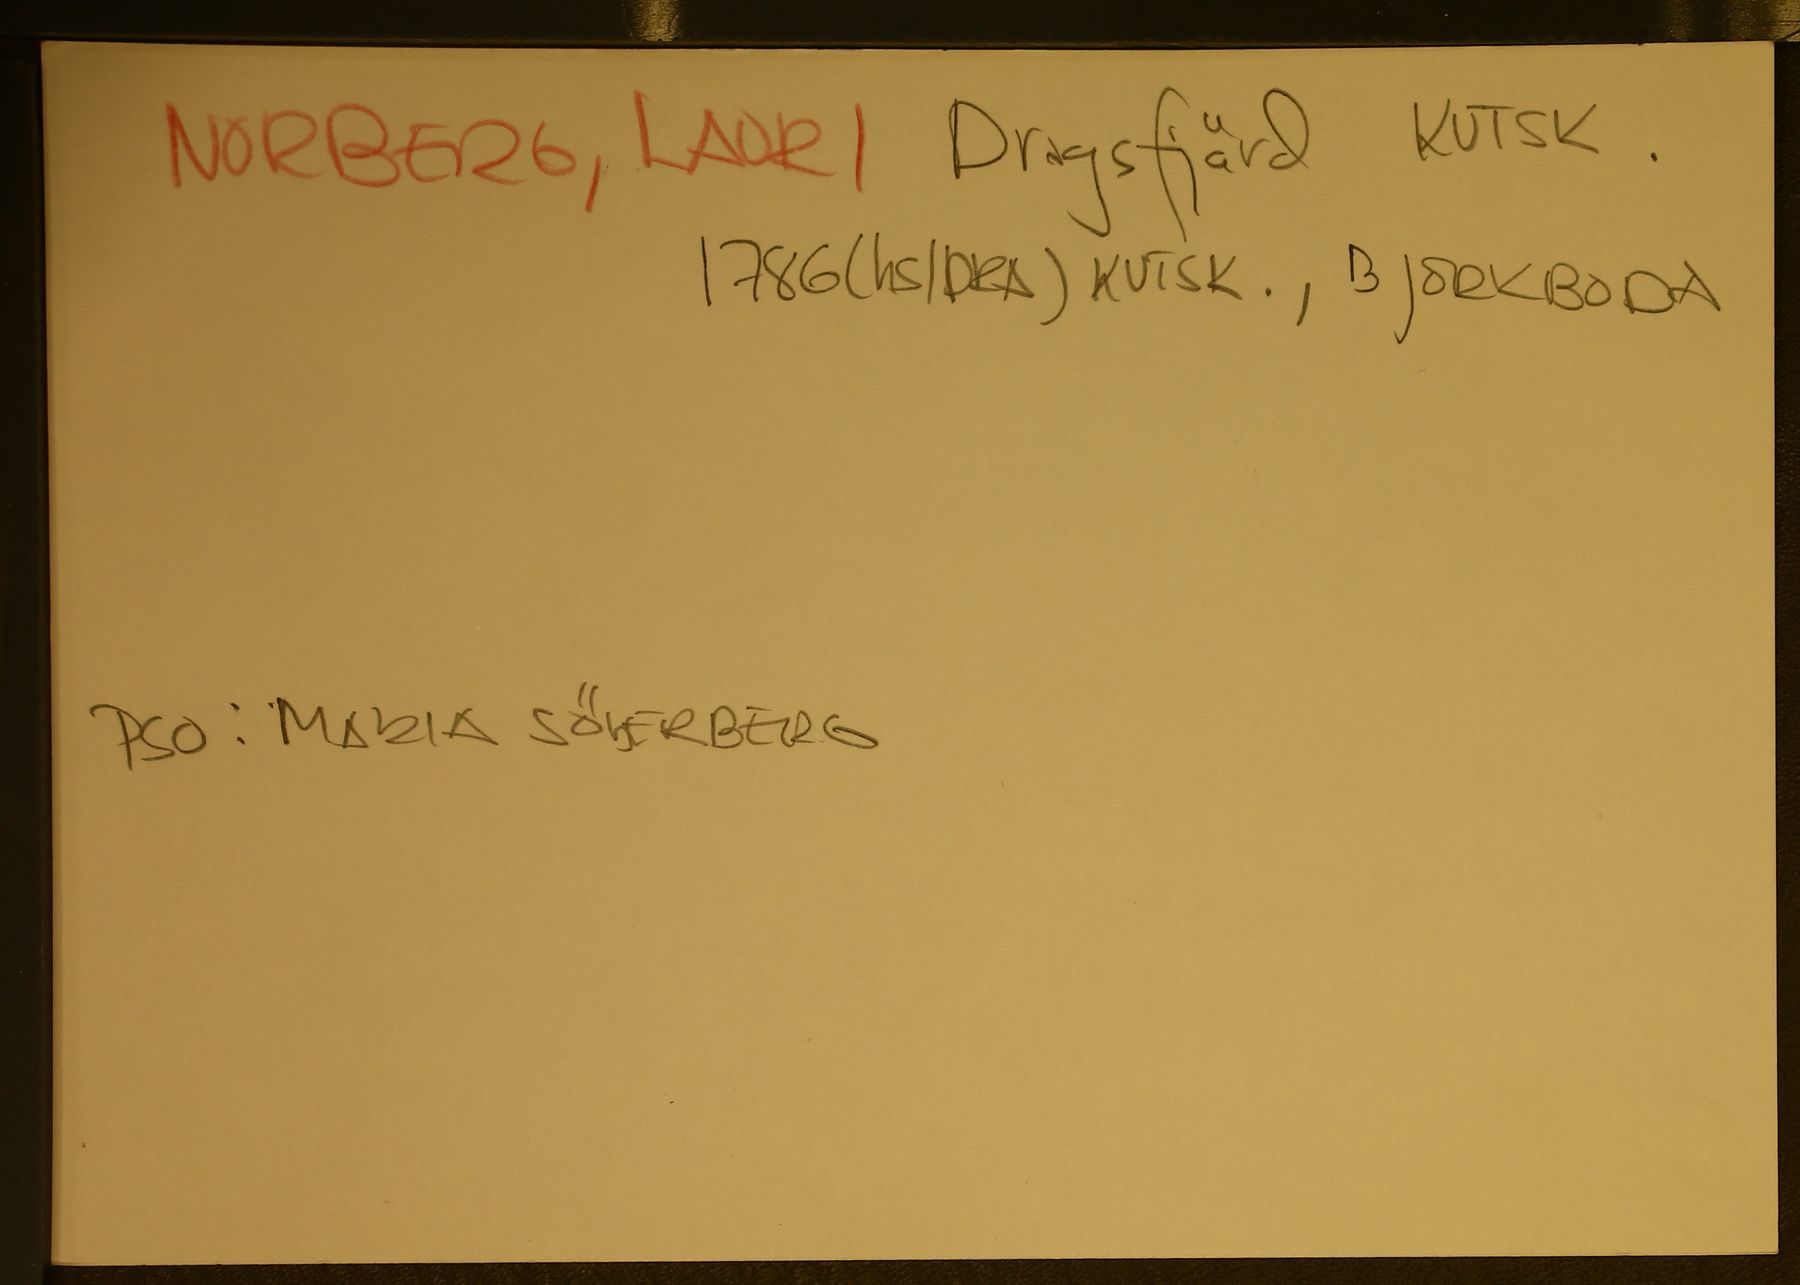 NORBERG, LAURI Dragsfjärd KUTSK.
1786(hs/DRA) KUTSK., BJÖRKBODA
PSO: MARIA SÖDERBERG